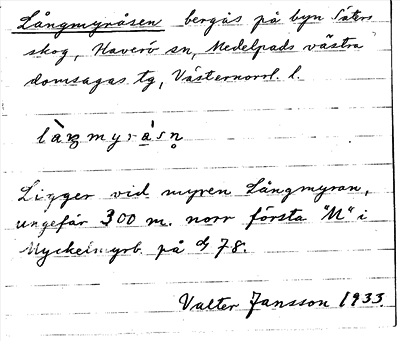 Långmyråsen bergås på byn Säters
skog, Haverö sn, Medelpads västra
domsagas tg, Västernorrl. l.
Ligger vid myren Långmyran,
ungefär 300 m. norr första "M" i
Myckelmyrb. på G 78.
Valter Jansson 1933.